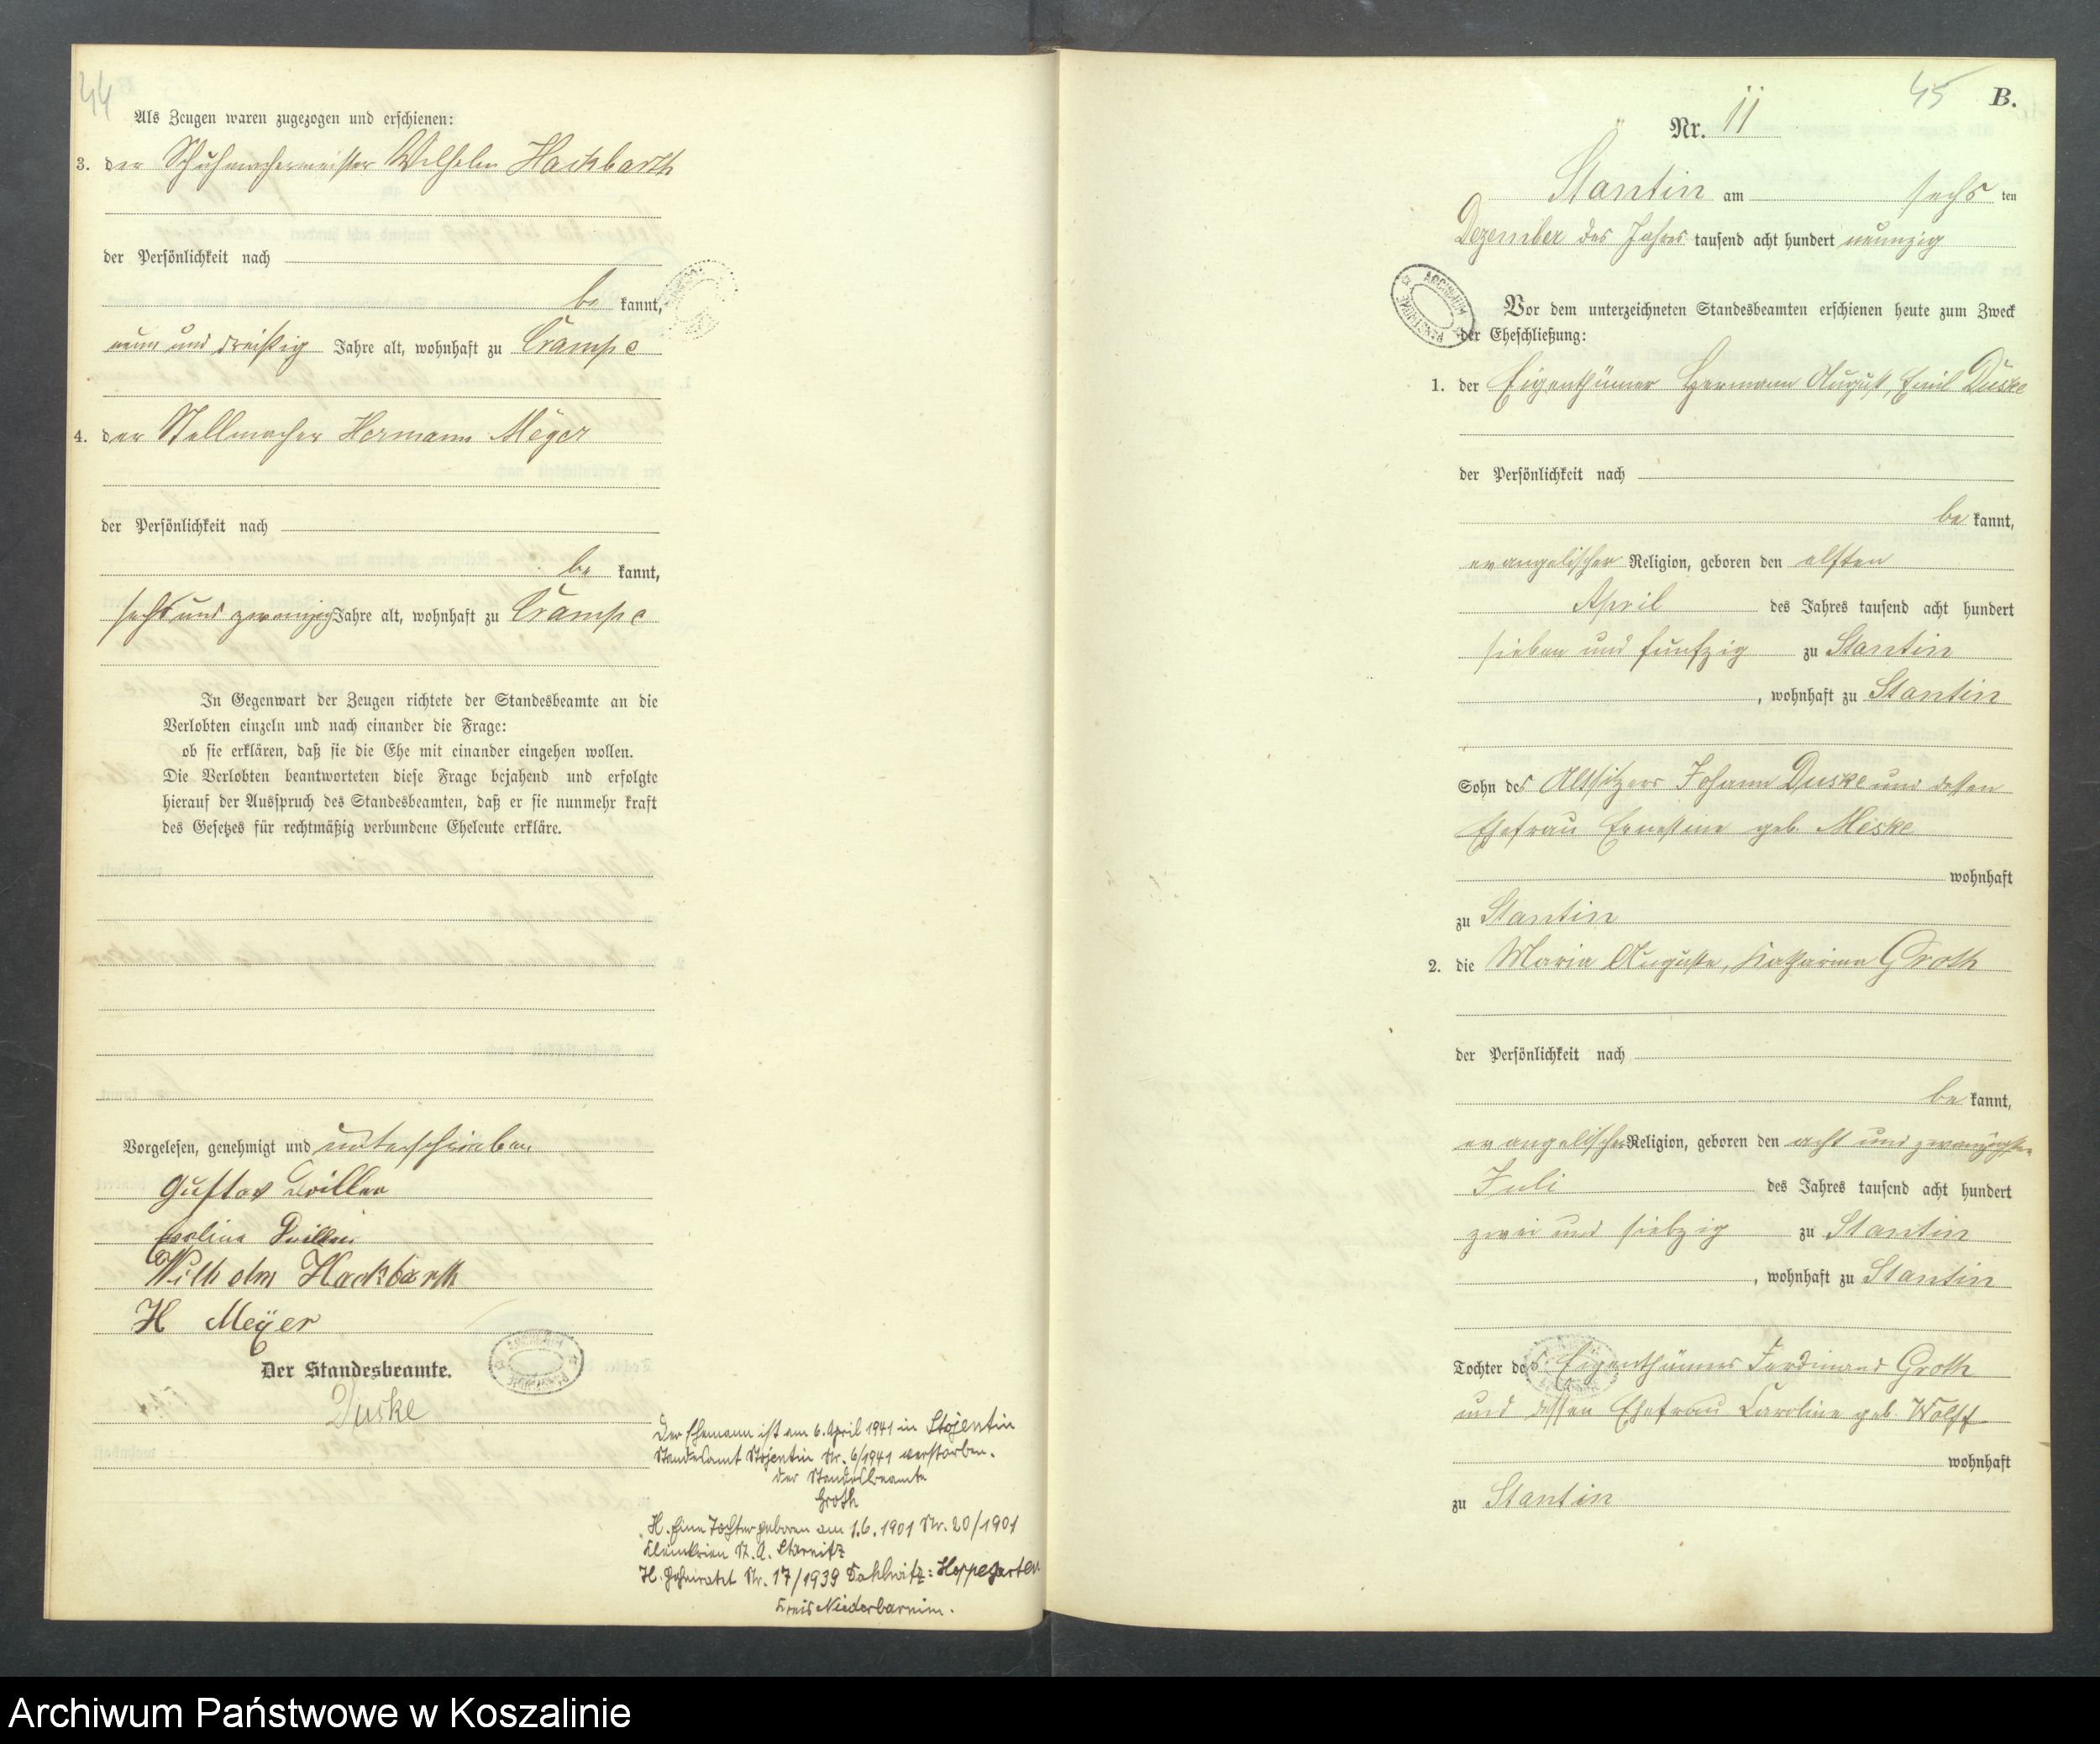 44
Als Zeugen waren zugezogen und erschienen:
3. der Schuhmachermeister Wilhelm Hackbarth
der Persönlichkeit nach
be kannt,
neun und dreißig Jahre alt, wohnhaft zu Crampe
4. der Stellmacher Hermann Meyer
der Persönlichkeit nach
be kannt,
sechs und zwanzig Jahre alt, wohnhaft zu Crampe
In Gegenwart der Zeugen richtete der Standesbeamte an die
Verlobten einzeln und nach einander die Frage:
ob sie erklären, daß sie die Ehe mit einander eingehen wollen.
Die Verlobten beantworteten diese Frage bejahend und erfolgte
hierauf der Ausspruch des Standesbeamten, daß er sie nunmehr kraft
des Gesetzes für rechtmäßig verbundene Eheleute erkläre.
Vorgelesen, genehmigt und unterschrieben
Gustav
Wilhelm Hackbarth
H Meÿer
Der Standesbeamte.
Duske
Der Ehemann ist am 6. April 1941 in Stojentin
Standesamt Stojentin Nr. 6/1941 verstorben.
Der Standesbeamte
Groth
H. Eine Tochter geboren am 1.6.1901 Nr. 20/1901
St. A.
H. Geheiratet Nr. 17/1939 Dahlwitz-Hoppegarten
Kreis Niederbarnim.
45
B.
Nr. 11
Stantin am sechs ten
Dezember des Jahres tausend acht hundert neunzig
Vor dem unterzeichneten Standesbeamten erschienen heute zum Zweck
der Eheschließung:
1. der Eigenthümer Hermann August, Emil Duske
der Persönlichkeit nach
be kannt,
evangelischer Religion, geboren den elften
April des Jahres tausend acht hundert
sieben und funfzig zu Stantin
, wohnhaft zu Stantin
Sohn des Altsitzers Johann Duske und dessen
Ehefrau Ernestine geb. Meske
wohnhaft
zu Stantin
2. die Maria Auguste, Katharina Groth
der Persönlichkeit nach
be kannt,
evangelischer Religion, geboren den acht und zwanzigsten
Juli des Jahres tausend acht hundert
zwei und siebzig zu Stantin
, wohnhaft zu Stantin
Tochter des Eigenthümers Ferdinand Groth
und dessen Ehefrau Caroline geb. Wolff
wohnhaft
zu Stantin
Archiwum Państwowe w Koszalinie